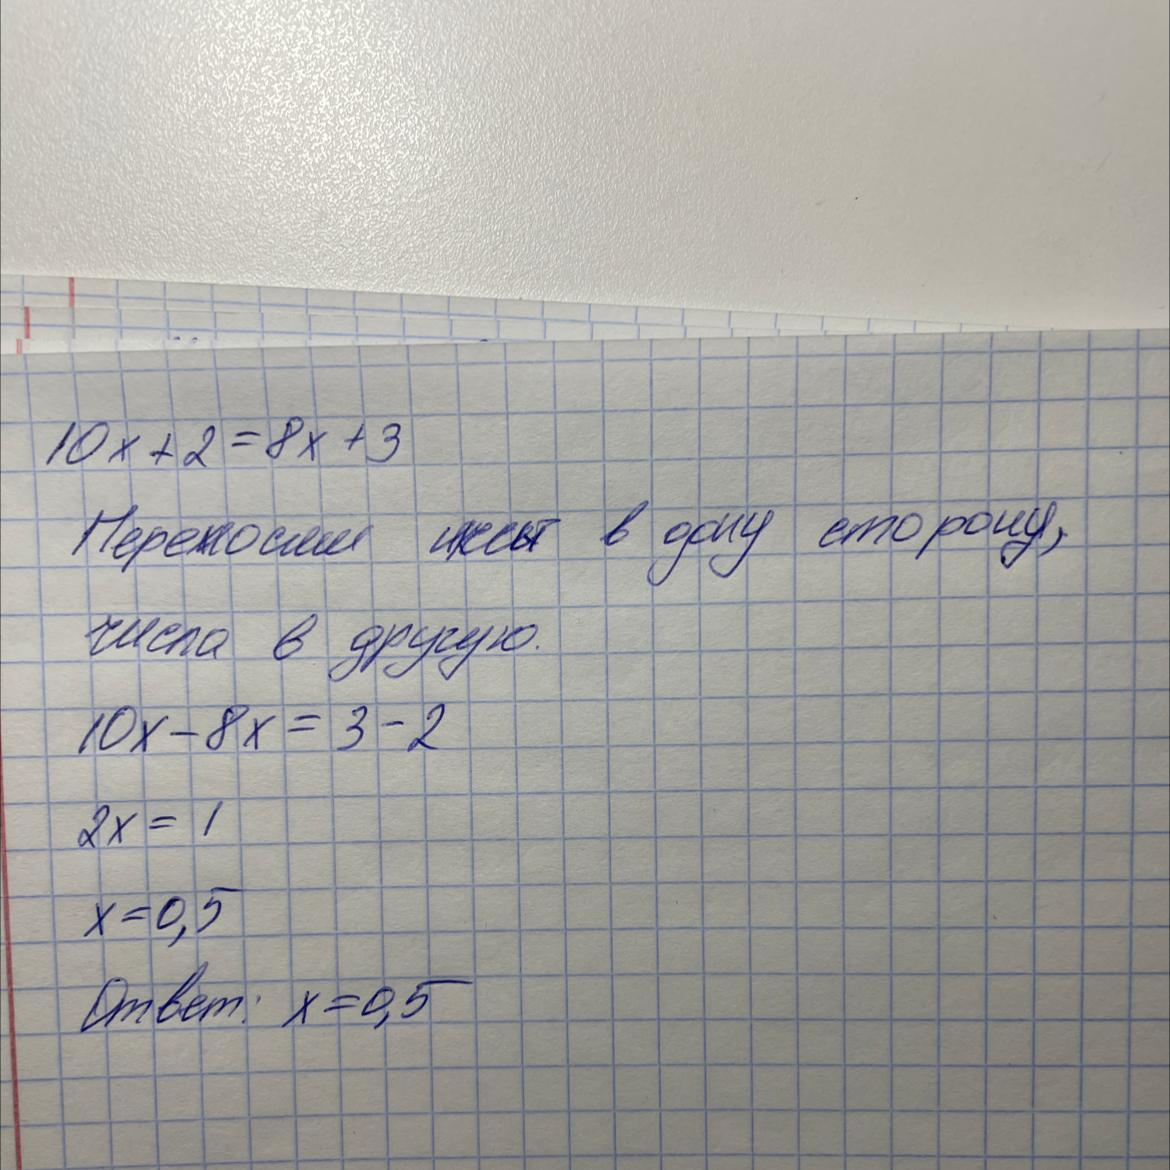 10x+2=8x+3
Переносим иксы в одну сторону,
числа в другую.
10x-8x=3-2
2x=1
x=0,5
Ответ: x=0,5